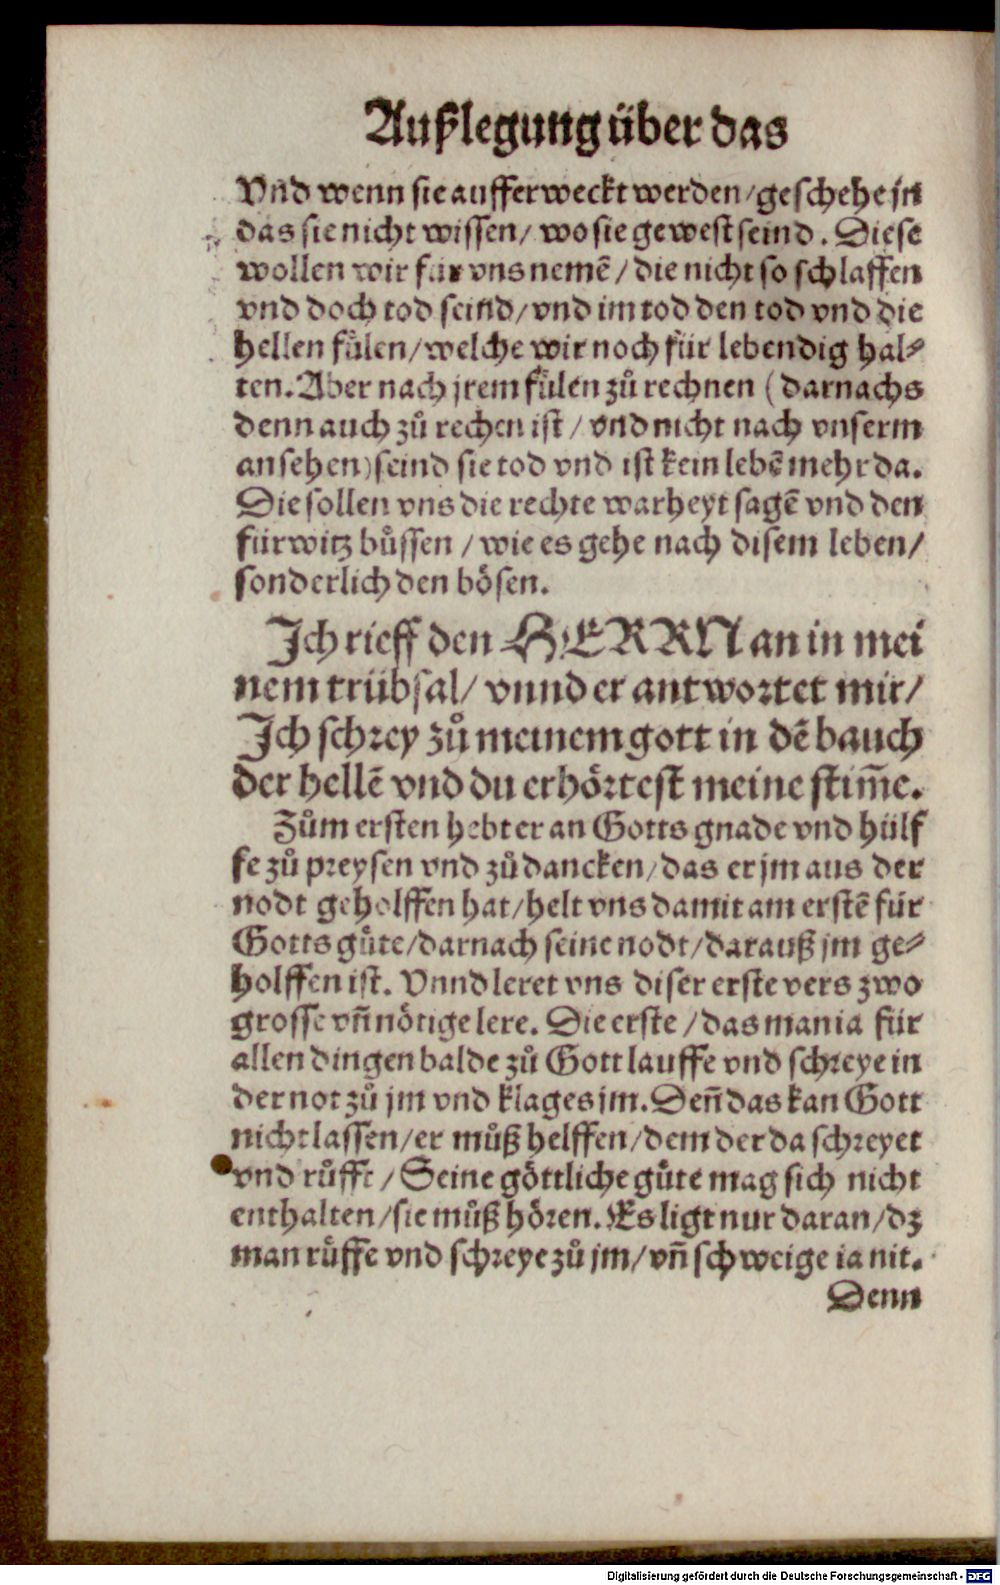 Außlegung über das
Vnd wenn sie aufferweckt werden/geschehe jn
das sie nicht wissen/ wo sie gewest seind. Diese
wollen wir für vns nemē/ die nicht so schlaffen
vnd doch tod seind/vnd im tod den tod vnd die
hellen fülen/welche wir noch für lebendig hal⸗
ten. Aber nach jrem fülen zů rechnen (darnachs
denn auch zů rechen ist/ vnd nicht nach vnserm
ansehen) seind sie tod vnd ist kein lebē mehr da.
Die sollen vns die rechte warheyt sagē vnd den
fürwitz bůssen/ wie es gehe nach disem leben/
sonderlich den bösen.
Ich rieff den HERRN an in mei
nem trübsal/ vnnd er antwortet mir/
Ich schrey zů meinem gott in dē bauch
der hellē vnd du erhörtest meine stim̄e.
Zům ersten hebt er an Gotts gnade vnd hülf
fe zů preysen vnd zů dancken/das er jm aus der
nodt geholffen hat/helt vns damit am erstē für
Gotts gůte/darnach seine nodt/darauß jm ge⸗
holffen ist. Vnnd leret vns diser erste vers zwo
grosse vn̄ nötige lere. Die erste/das man ia für
allen dingen balde zů Gott lauffe vnd schreye in
der not zů jm vnd klages jm. Den̄ das kan Gott
nicht lassen/er můß helffen/dem der da schreyet
vnd růfft/ Seine göttliche gůte mag sich nicht
enthalten/sie můß hören. Es ligt nur daran/dz
man růffe vnd schreye zů jm/vn̄ schweige ia nit.
Denn
Digitalisierung gefördert durch die Deutsche Forschungsgemeinschaft - DFG